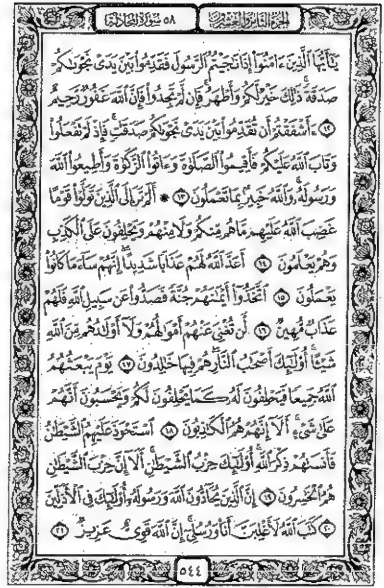 الجزء الثامن والعشرون
٥٨ سورة المجادلة
يَٰٓأَيُّهَا ٱلَّذِينَ ءَامَنُوٓاْ إِذَا نَٰجَيۡتُمُ ٱلرَّسُولَ فَقَدِّمُواْ بَيۡنَ يَدَيۡ نَجۡوَىٰكُمۡ
صَدَقَةٗۚ ذَٰلِكَ خَيۡرٞ لَّكُمۡ وَأَطۡهَرُۚ فَإِن لَّمۡ تَجِدُواْ فَإِنَّ ٱللَّهَ غَفُورٞ رَّحِيمٌ
١٢ ءَأَشۡفَقۡتُمۡ أَن تُقَدِّمُواْ بَيۡنَ يَدَيۡ نَجۡوَىٰكُمۡ صَدَقَٰتٖۚ فَإِذۡ لَمۡ تَفۡعَلُواْ
وَتَابَ ٱللَّهُ عَلَيۡكُمۡ فَأَقِيمُواْ ٱلصَّلَوٰةَ وَءَاتُواْ ٱلزَّكَوٰةَ وَأَطِيعُواْ ٱللَّهَ
وَرَسُولَهُۥۚ وَٱللَّهُ خَبِيرُۢ بِمَا تَعۡمَلُونَ ١٣ ۞ أَلَمۡ تَرَ إِلَى ٱلَّذِينَ تَوَلَّوۡاْ قَوۡمًا
غَضِبَ ٱللَّهُ عَلَيۡهِم مَّا هُم مِّنكُمۡ وَلَا مِنۡهُمۡ وَيَحۡلِفُونَ عَلَى ٱلۡكَذِبِ
وَهُمۡ يَعۡلَمُونَ ١٤ أَعَدَّ ٱللَّهُ لَهُمۡ عَذَابٗا شَدِيدًاۖ إِنَّهُمۡ سَآءَ مَا كَانُواْ
يَعۡمَلُونَ ١٥ ٱتَّخَذُوٓاْ أَيۡمَٰنَهُمۡ جُنَّةٗ فَصَدُّواْ عَن سَبِيلِ ٱللَّهِ فَلَهُمۡ
عَذَابٞ مُّهِينٞ ١٦ لَّن تُغۡنِيَ عَنۡهُمۡ أَمۡوَٰلُهُمۡ وَلَآ أَوۡلَٰدُهُم مِّنَ ٱللَّهِ
شَيۡـًٔاۚ أُوْلَٰٓئِكَ أَصۡحَٰبُ ٱلنَّارِۖ هُمۡ فِيهَا خَٰلِدُونَ ١٧ يَوۡمَ يَبۡعَثُهُمُ
ٱللَّهُ جَمِيعٗا فَيَحۡلِفُونَ لَهُۥ كَمَا يَحۡلِفُونَ لَكُمۡ وَيَحۡسَبُونَ أَنَّهُمۡ
عَلَىٰ شَيۡءٍۚ أَلَآ إِنَّهُمۡ هُمُ ٱلۡكَٰذِبُونَ ١٨ ٱسۡتَحۡوَذَ عَلَيۡهِمُ ٱلشَّيۡطَٰنُ
فَأَنسَىٰهُمۡ ذِكۡرَ ٱللَّهِۚ أُوْلَٰٓئِكَ حِزۡبُ ٱلشَّيۡطَٰنِۚ أَلَآ إِنَّ حِزۡبَ ٱلشَّيۡطَٰنِ
هُمُ ٱلۡخَٰسِرُونَ ١٩ إِنَّ ٱلَّذِينَ يُحَآدُّونَ ٱللَّهَ وَرَسُولَهُۥٓ أُوْلَٰٓئِكَ فِي ٱلۡأَذَلِّينَ
٢٠ كَتَبَ ٱللَّهُ لَأَغۡلِبَنَّ أَنَا۠ وَرُسُلِيٓۚ إِنَّ ٱللَّهَ قَوِيٌّ عَزِيزٞ ٢١
٥٤٤